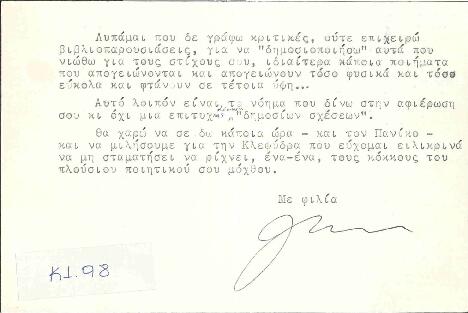 Λυπάμαι που δε γράφω κριτικές, ούτε επιχειρώ
βιβλιοπαρουσιάσεις, για να "δημοσιοποιήσω" αυτά που
νιώθω για τους στίχους σου, ιδιαίτερα κάποια ποιήματα
που απογειώνονται και απογειώνουν τόσο φυσικά και τόσο
εύκολα και φτάνουν σε τέτοια ύψη...
Αυτό λοιπόν είναι το νόημα που δίνω στην αφιέρωση
σου κι όχι μια "δημοσίων σχέσεων".
Θα χαρώ να σε δω κάποια ώρα - και τον Πανίκο -
και να μιλήσουμε για την Κλεψύδρα που εύχομαι ειλικρινά
να μη σταματήσει να ρίχνει, ένα-ένα, τους κόκκους του
πλούσιου ποιητικού σου μόχθου.
Με φιλία
Κ1.98